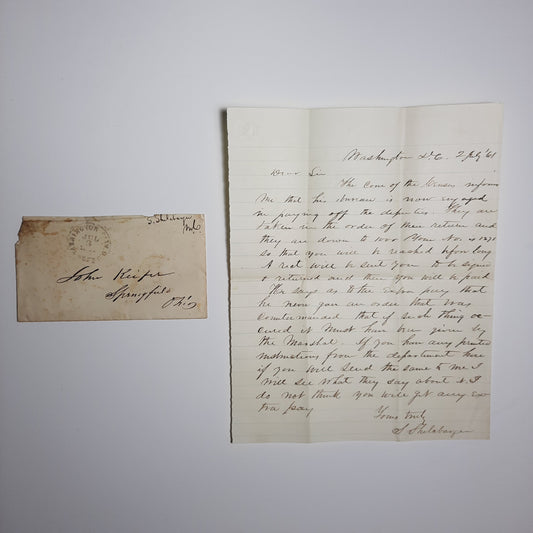 S. Shelabarger
MC
WASHINGTON CITY D.C.
JUL
John Keifer
Springfield
Ohio
Washington D.C. 2 July '61
Dear Sir
The com of the Census informs
me that his bureau is now engaged
in paying off the deputies. They are
taken in the order of their return and
they are down to 1000 Your No. is 1270
so that you will be reached before long
A rect will be sent you to be signed
& returned and then you will be paid
He says as to the extra pay that
he never gave an order that was
countermanded that if such thing oc
cured it must have been given by
the Marshal. If you have any printed
instructions from the department here
if you will send the same to me I
will see what they say about it. I
do not think you will get any ex
tra pay
Yours truly
S Shelabarger